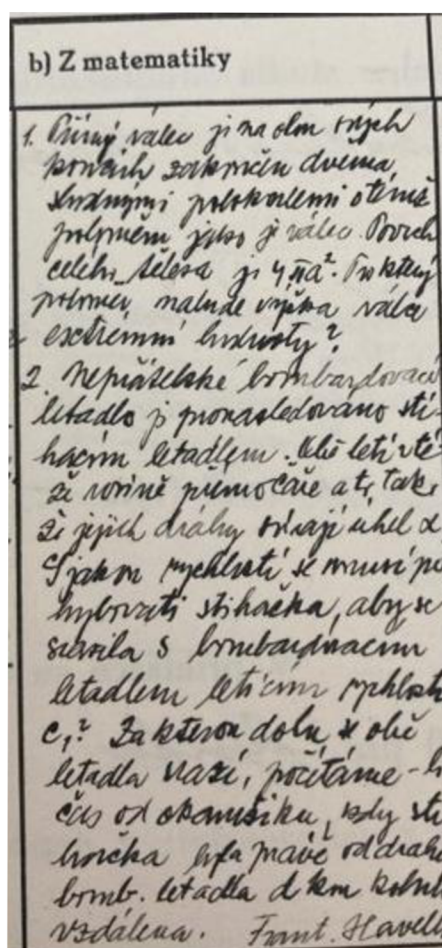 b) Z matematiky
1. Přímý válec je na obou svých
koncích zakončen dvěma
dutými polokoulemi o témž
poloměru jako je válec. Povrch
celého tělesa je 4πa². Pro který
poloměr nabude výška válce
extrémní hodnoty?
2. Nepřátelské bombardovací
letadlo je pronásledováno stí-
hacím letadlem. Obě letí v té-
že rovině přímočaře a to tak,
že jejich dráhy svírají úhel α.
S jakou rychlostí se musí po-
hybovati stíhačka, aby se
srazila s bombardovacím
letadlem letícím rychlostí
c₁? Za kterou dobu se obě
letadla srazí, počítáme-li
čas od okamžiku, kdy stí-
hačka byla právě od dráhy
bomb. letadla d km kolmo
vzdálena. Frant. Havel